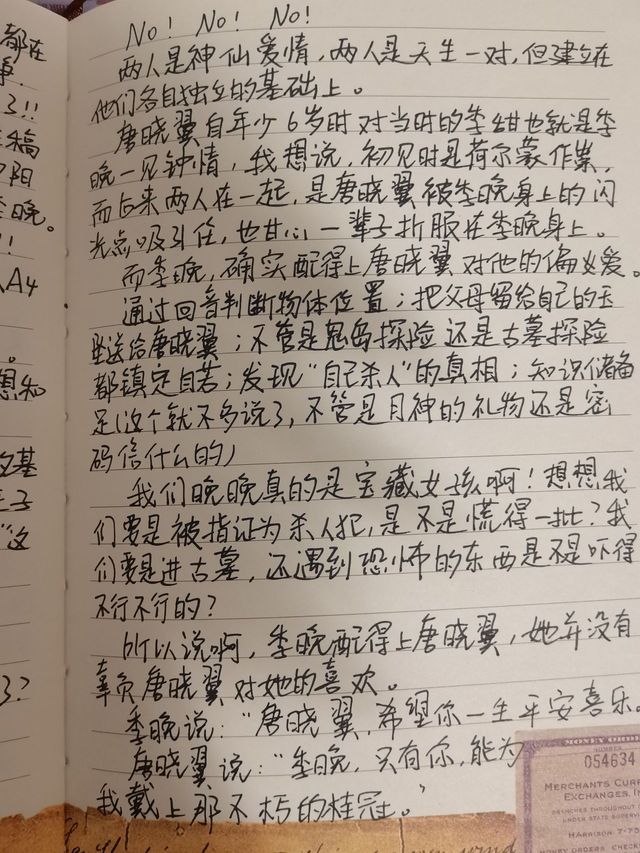 都在
No! No! No!
两人是神仙爱情，两人是天生一对，但建立在
他们各自独立的基础上。
唐晓翼自年少6岁时对当时的李绀也就是李
晚一见钟情，我想说，初见时是荷尔蒙作祟，
而后来两人在一起，是唐晓翼被李晚身上的闪
光点吸引住，也甘心一辈子折服在李晚身上。
而李晚，确实配得上唐晓翼对他的偏义爱。
通过回音判断物体位置；把父母留给自己的玉
坠送给唐晓翼；不管是鬼岛探险还是古墓探险
都镇定自若；发现“自己杀人”的真相；知识储备
足(这个就不多说了，不管是月神的礼物还是密
码信什么的)
我们晚晚真的是宝藏女孩啊！想想我
们要是被指证为杀人犯，是不是慌得一批？我
们要是进古墓，还遇到恐怖的东西是不是吓得
不行不行的？
所以说啊，李晚配得上唐晓翼，她并没有
辜负唐晓翼对她的喜欢。
李晚说：“唐晓翼，希望你一生平安喜乐。
唐晓翼说：“李晚，只有你，能为
我戴上那不朽的桂冠。”
MONEY ORDER
NUMBER
054634
MERCHANTS CURR
EXCHANGES, IN
BRANCHES THROUGHOUT
UNDER STATE SUPERVI
HARRISON 7-75